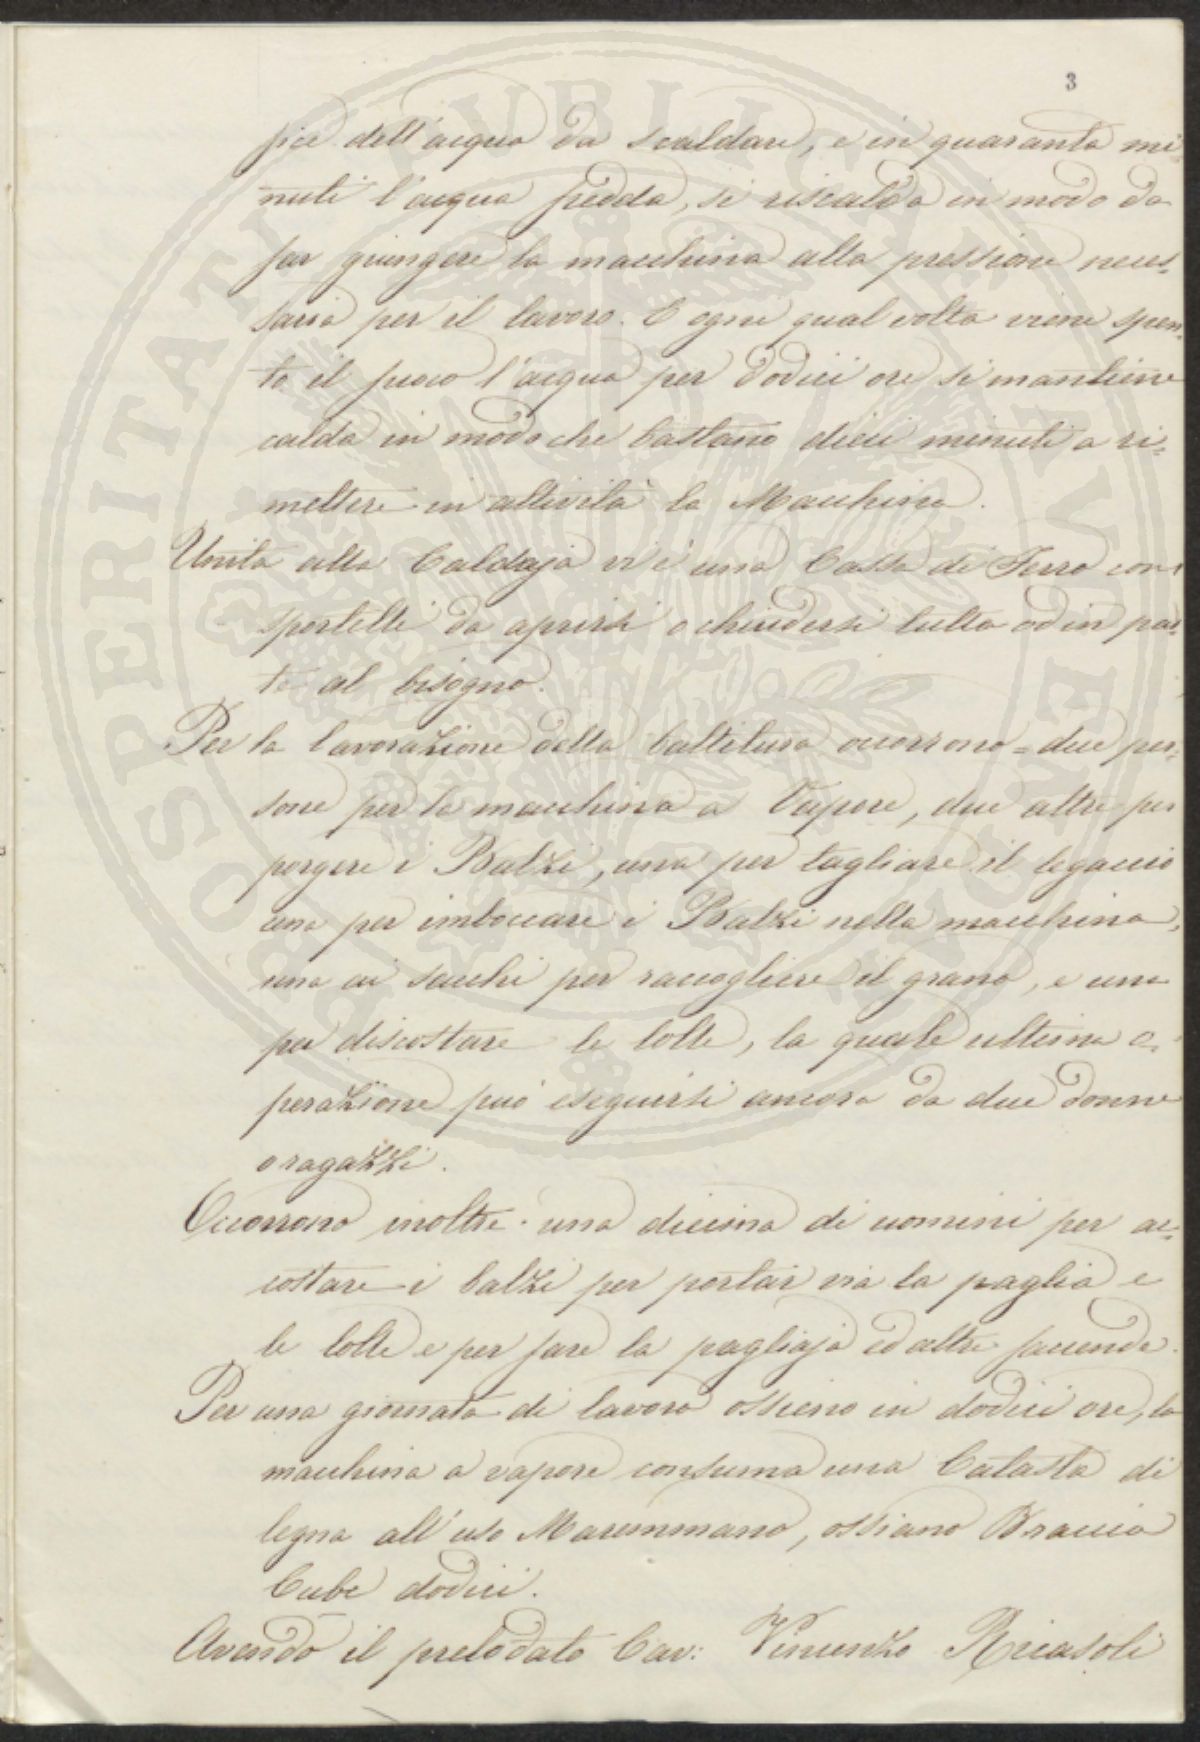 3
fice dell'acqua da scaldare, e in quaranta mi=
nuti l'acqua fredda, si riscalda in modo da
far giungere la macchina alla pressione neces=
saria per il lavoro. E ogni qual volta viene spen=
to il fuoco l'acqua per dodici ore si mantiene
calda in modo che bastano dieci minuti a ri=
mettere in attività la Macchina.
Unita alla Caldaja vi è una Cassa di Ferro con
sportelli da aprirsi o chiudersi tutta od in par=
te al bisogno.
Per la lavorazione della battitura occorrono = due per=
sone per la macchina a Vapore, due altre per
porgere i Balzi, una per tagliare il legaccio
una per imboccare i Balzi nella macchina,
una ai sacchi per raccogliere il grano, e una
per discostare le lolle, la quale ultima o=
perazione può eseguirsi ancora da due donne
o ragazzi.
Occorrono inoltre una diecina di uomini per ac=
costare i balzi per portar via la paglia e
le lolle e per fare la pagliaja ed altre faccende.
Per una giornata di lavoro ossieno in dodici ore, la
macchina a vapore consuma una Catasta di
legna all'uso Maremmano, ossiano Braccia
Cube dodici.
Avendo il prelodato Cav: Vincenzo Ricasoli
PROSPERITATI PUBLICAE AUGENDAE